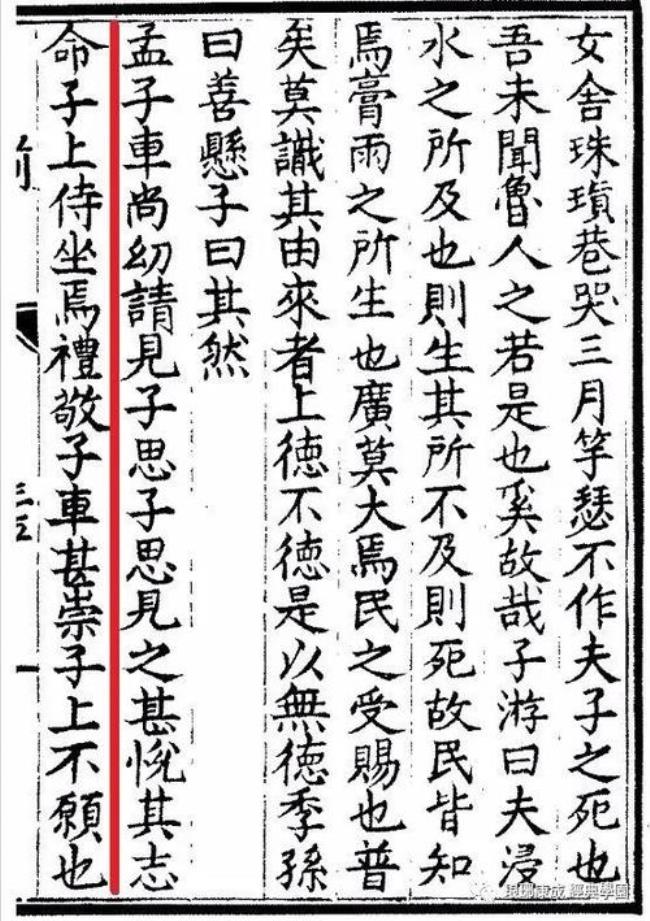 女舍珠瑱巷哭三月竽瑟不作夫子之死也
吾未聞魯人之若是也奚故哉子游曰夫浸
水之所及也則生其所不及則死故民皆知
焉膏雨之所生也廣莫大焉民之受賜也普
矣莫識其由來者上德不德是以無德季孫
曰善懸子曰其然
孟子車尚幼請見子思子思見之甚悅其志
命子上侍坐焉禮敬子車甚崇子上不願也
經典學園